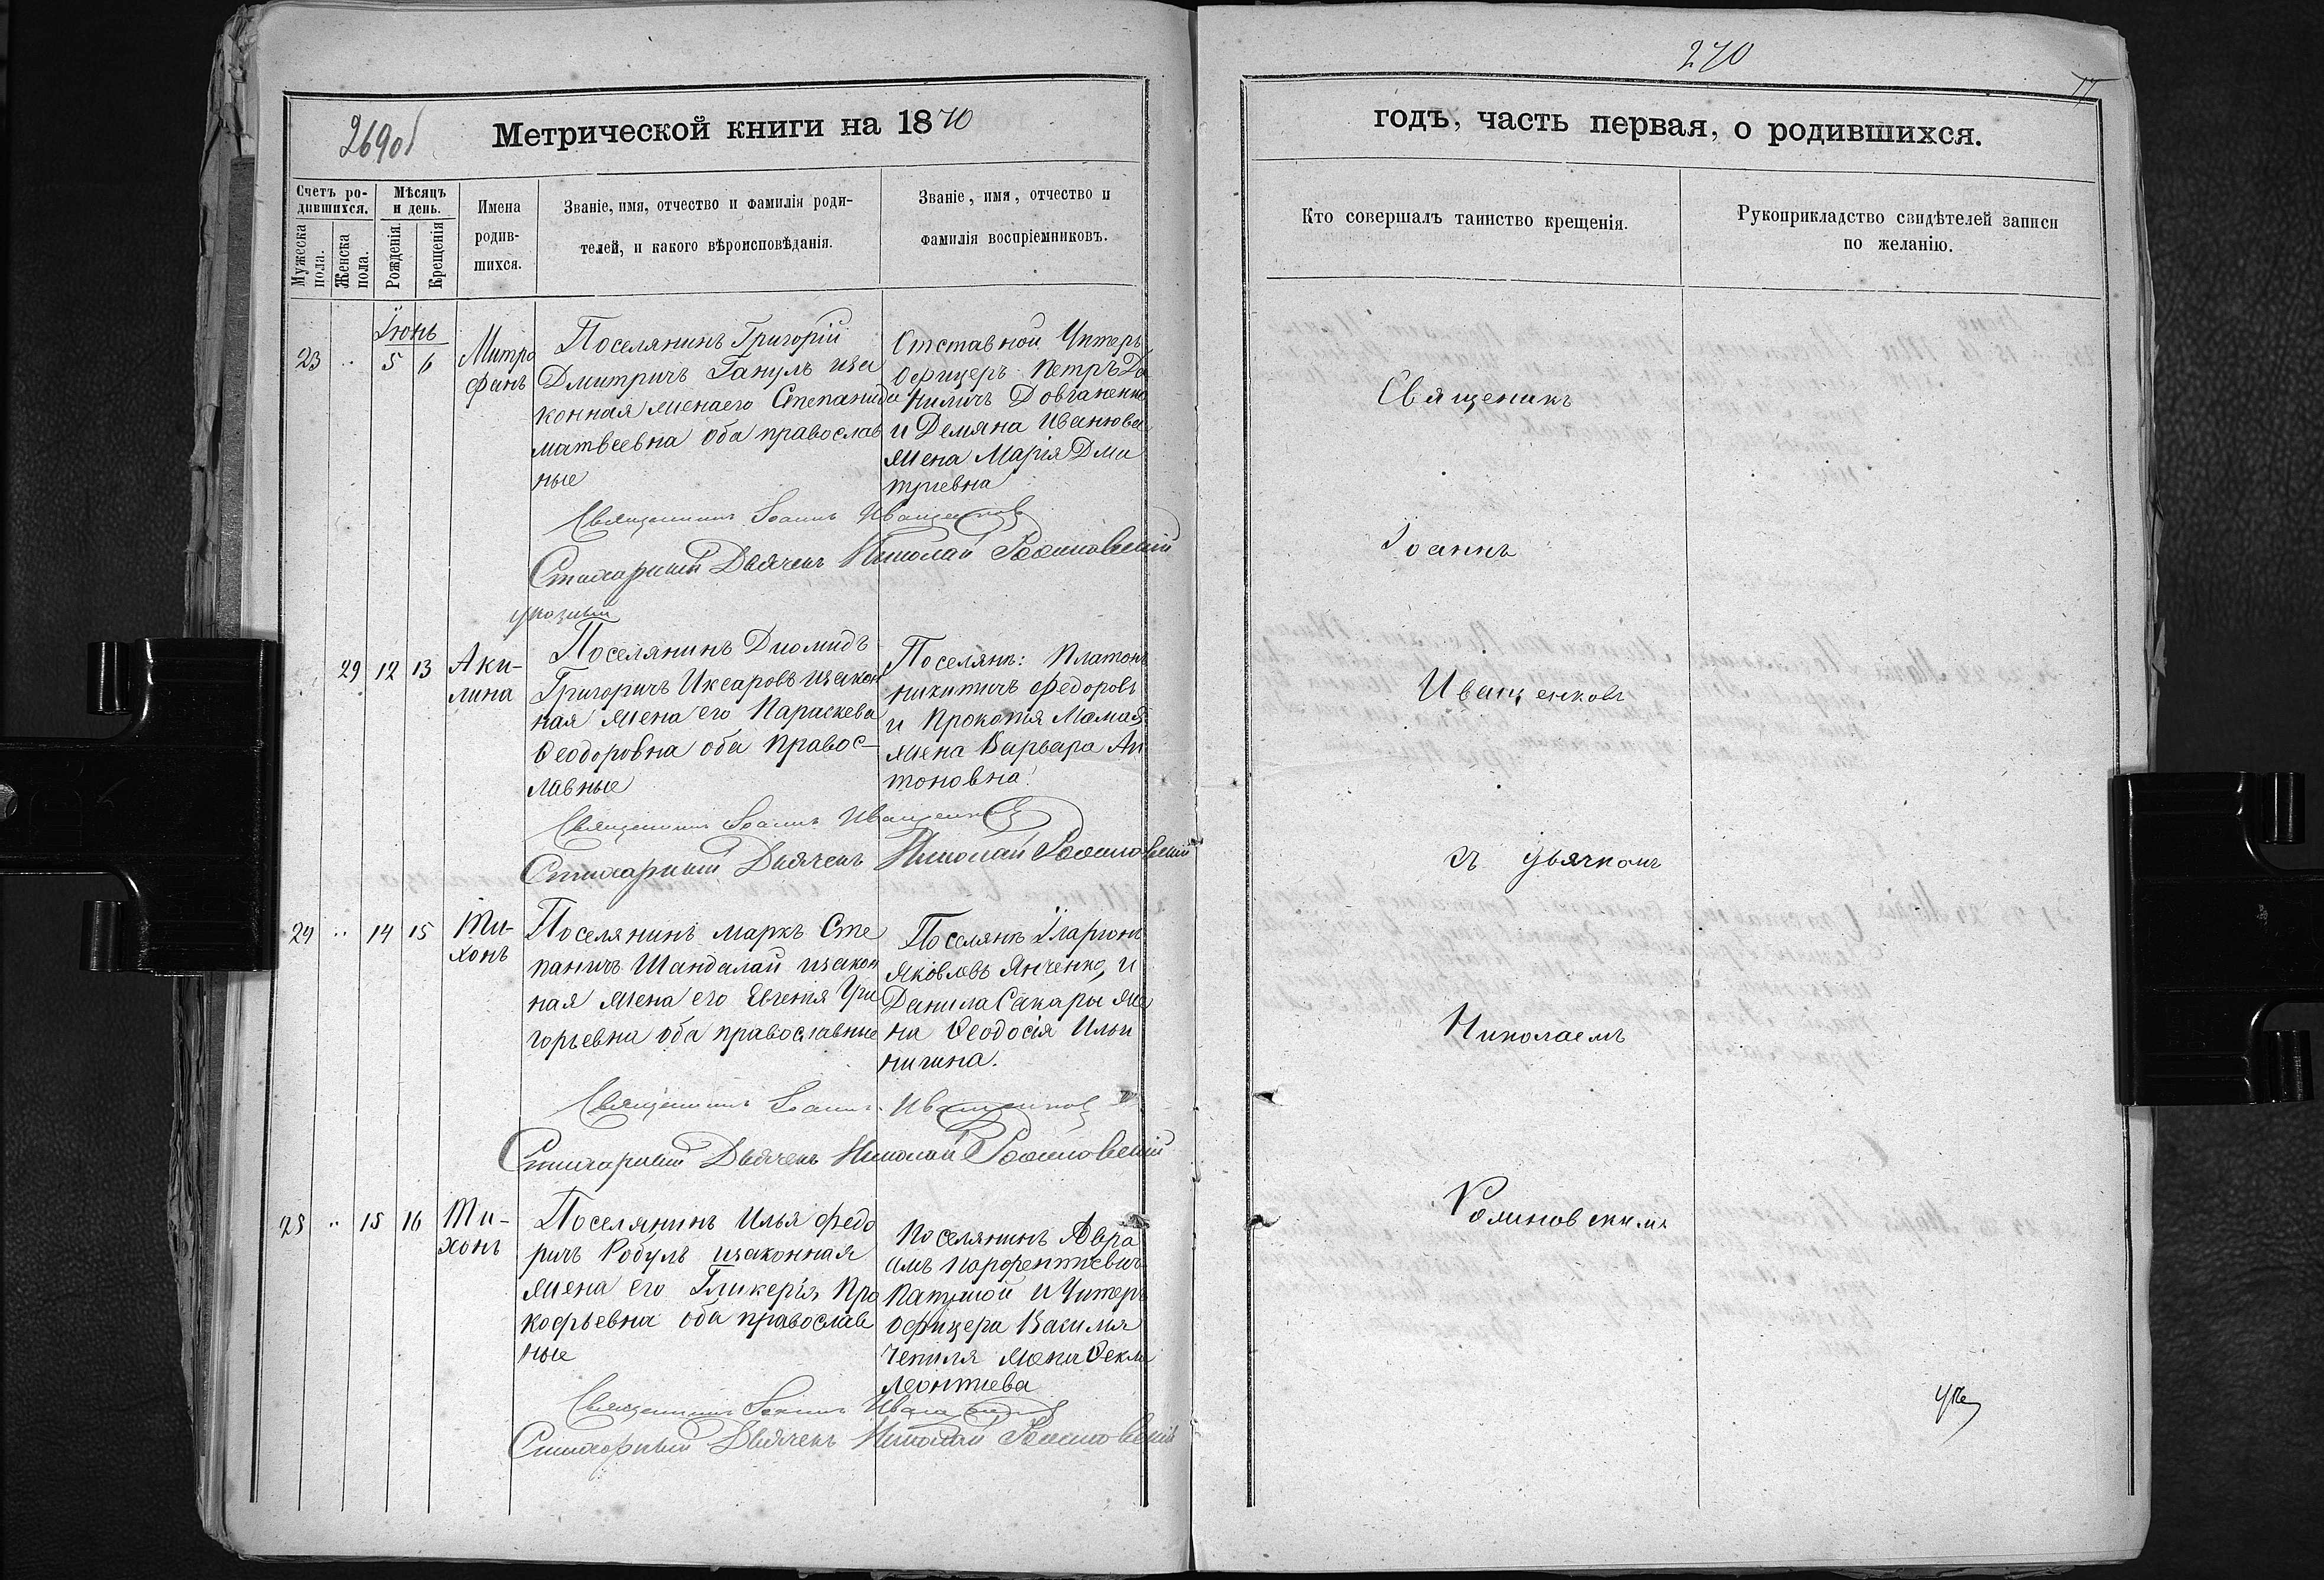 270
269об
Метрической книги на 1870
годъ, часть первая, о родившихся.
Счетъ ро-
дившихся.
Мѣсяцъ
и день.
Мужеска
пола.
Женска
пола.
Рожденія.
Крещенія
Имена
родив-
шихся.
Званіе, имя, отчество и фамилія роди-
телей, и какого вѣроисповѣданія.
Званіе, имя, отчество и
фамилія воспріемниковъ.
Кто совершалъ таинство крещенія.
Рукоприкладство свидѣтелей записи
по желанію.
Іюнь
23 .. 5 6
Митро
фанъ
Поселянинъ Григорій
Дмитричъ Гануль иза
конная жена его Степанида
матвеевна оба православ
ные
Отставной Унтеръ
Офицеръ Петръ Да
ниличъ Довганенко
и Демяна Иванова
жена Марія Дми
тріевна
Священникъ Іоаннъ Иващенковъ
Стихарный Дьячекъ Николай Романовскій
29 12 13
Аки-
лина
Поселянинъ Диомидъ
Григоричъ Иксаровъ изакон
ная жена его Параскева
Феодоровна оба правос-
лавные
Поселянъ: Платонъ
никитичъ Федоровъ
и Прокопія Мамай
жена Варвара Ан
тоновна
Священникъ Іоаннъ Иващенковъ
Стихарный Дьячекъ Николай Романовскій
24 .. 14 15
Ти-
хонъ
Поселянинъ Маркъ Сте
паничъ Шандалай изакон
ная жена его Евгенія Гри
горьевна оба православные
Поселянъ Іларіонъ
Яковлевъ Янченко, и
Данила Сакары же
на Феодосія Ильи
нична.
Священникъ Іоаннъ Иващенковъ
Стихарный Дьячекъ Николай Романовскій
25 .. 15 16
Ти-
хонъ
Поселянинъ Илья Федо
ричъ Робуль изаконная
жена его Гликерія Про
кофьевна оба православ
ные
Поселянинъ Авра
амъ Парфентіевичъ
и Унтеръ
офицера Василія
Чепиля жена Фекла
Леонтиева
Священникъ Іоаннъ Иващенковъ
Стихарный Дьячекъ Николай Романовскій
Священикъ
Іоаннъ
Иващенковъ
съ дьячкомъ
Николаемъ
Романовскимъ